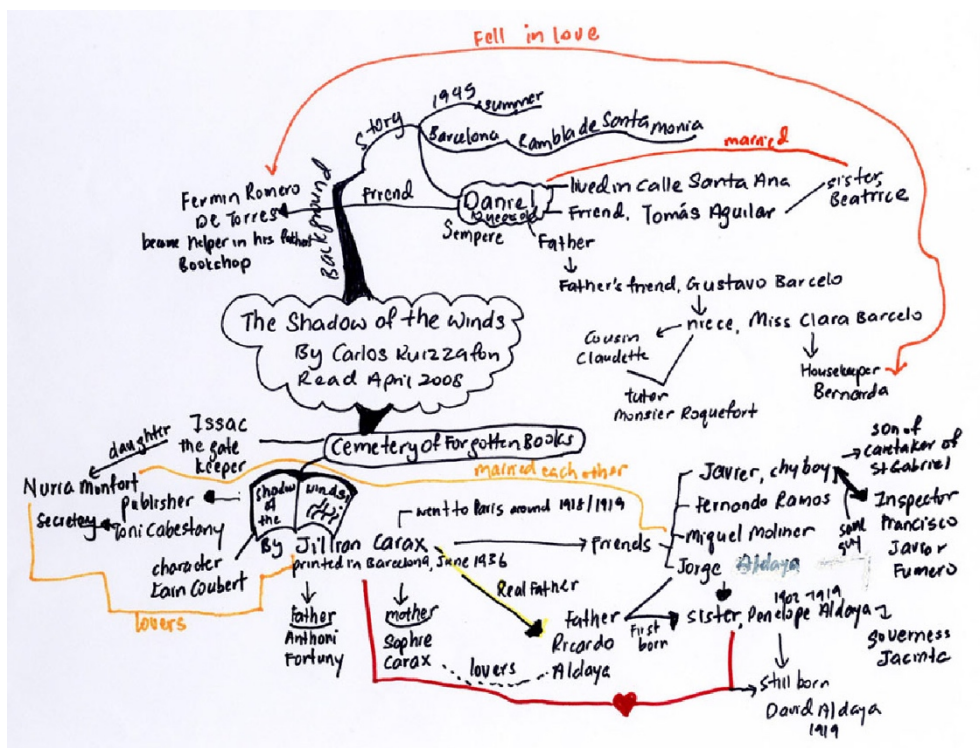 Fell in love
1945
summer
Story
Barcelona
Rambla de Santa monia
married
Background
Fermin Romero
De Torres
became helper in his father
Bookchop
Friend
Daniel
Sempere
lived in calle Santa Ana
Friend, Tomás Aguilar
sister,
Beatrice
Father
Father's friend, Gustavo Barcelo
niece, Miss Clara Barcelo
Cousin
Claudette
tutor
monsier Roquefort
Housekeeper
Bernarda
The Shadow of the winds
By Carlos Ruizzafon
Read April 2008
Cemetery of Forgotten Books
Issac
the gate
keeper
daughter
Nuria Monfort
married each other
Publisher
Toni Cabestany
Secretay
Shadow
of
the
winds
character
Lain Coubert
By Jillian Carax
printed in Barcelona, June 1936
went to Paris around 1918/1919
lovers
Friends
Javier, chyboy
Fernando Ramos
Miquel Moliner
Jorge Aldaya
son of
caretaker of
St Gabriel
same
guy
Inspector
Francisco
Javier
Fumero
Father
Anthoni
Fortuny
mother
Sophie
Carax
lovers
Real Father
Father
Ricardo
Aldaya
First
born
1902-1919
Sister, Penelope Aldaya
governess
Jacinta
Still born
David Aldaya
1919